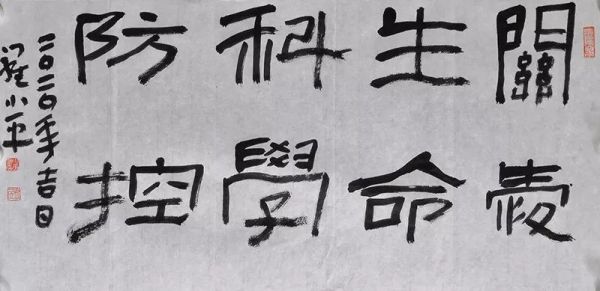 關爱
生命
科學
防控
二〇二〇年吉日
小平